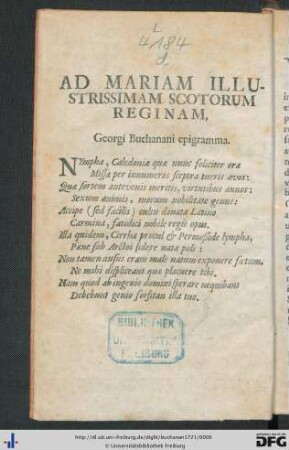 L
4184
d
AD MARIAM ILLU-
STRISSIMAM SCOTORUM
REGINAM,
Georgi Buchanani epigramma.
NYmpha, Caledoniæ quæ nunc feliciter oræ
Missa per innumeros sceptra tueris avos:
Quæ sortem antevenis meritis, virtutibus annos:
Sexum animis, morum nobilitate genus:
Accipe (sed facilis) cultu donata Latino
Carmina, fatidici nobile regis opus.
Illa quidem, Cirrha procul & Permesside lympha,
Pæne sub Arctoi sidere nata poli:
Non tamen ausus eram male natum exponere fœtum,
Ne mihi displiceant quæ placuere tibi.
Nam quod ab ingenio domini sperare nequibant
Debebunt genio forsitan illa tuo.
BIBLIOTHEK
DER
UNIVERSITÄT
FREIBURG
http://dl.ub.uni-freiburg.de/diglit/buchanan1721/0006
© Universitätsbibliothek Freiburg
gefördert durch die
DFG